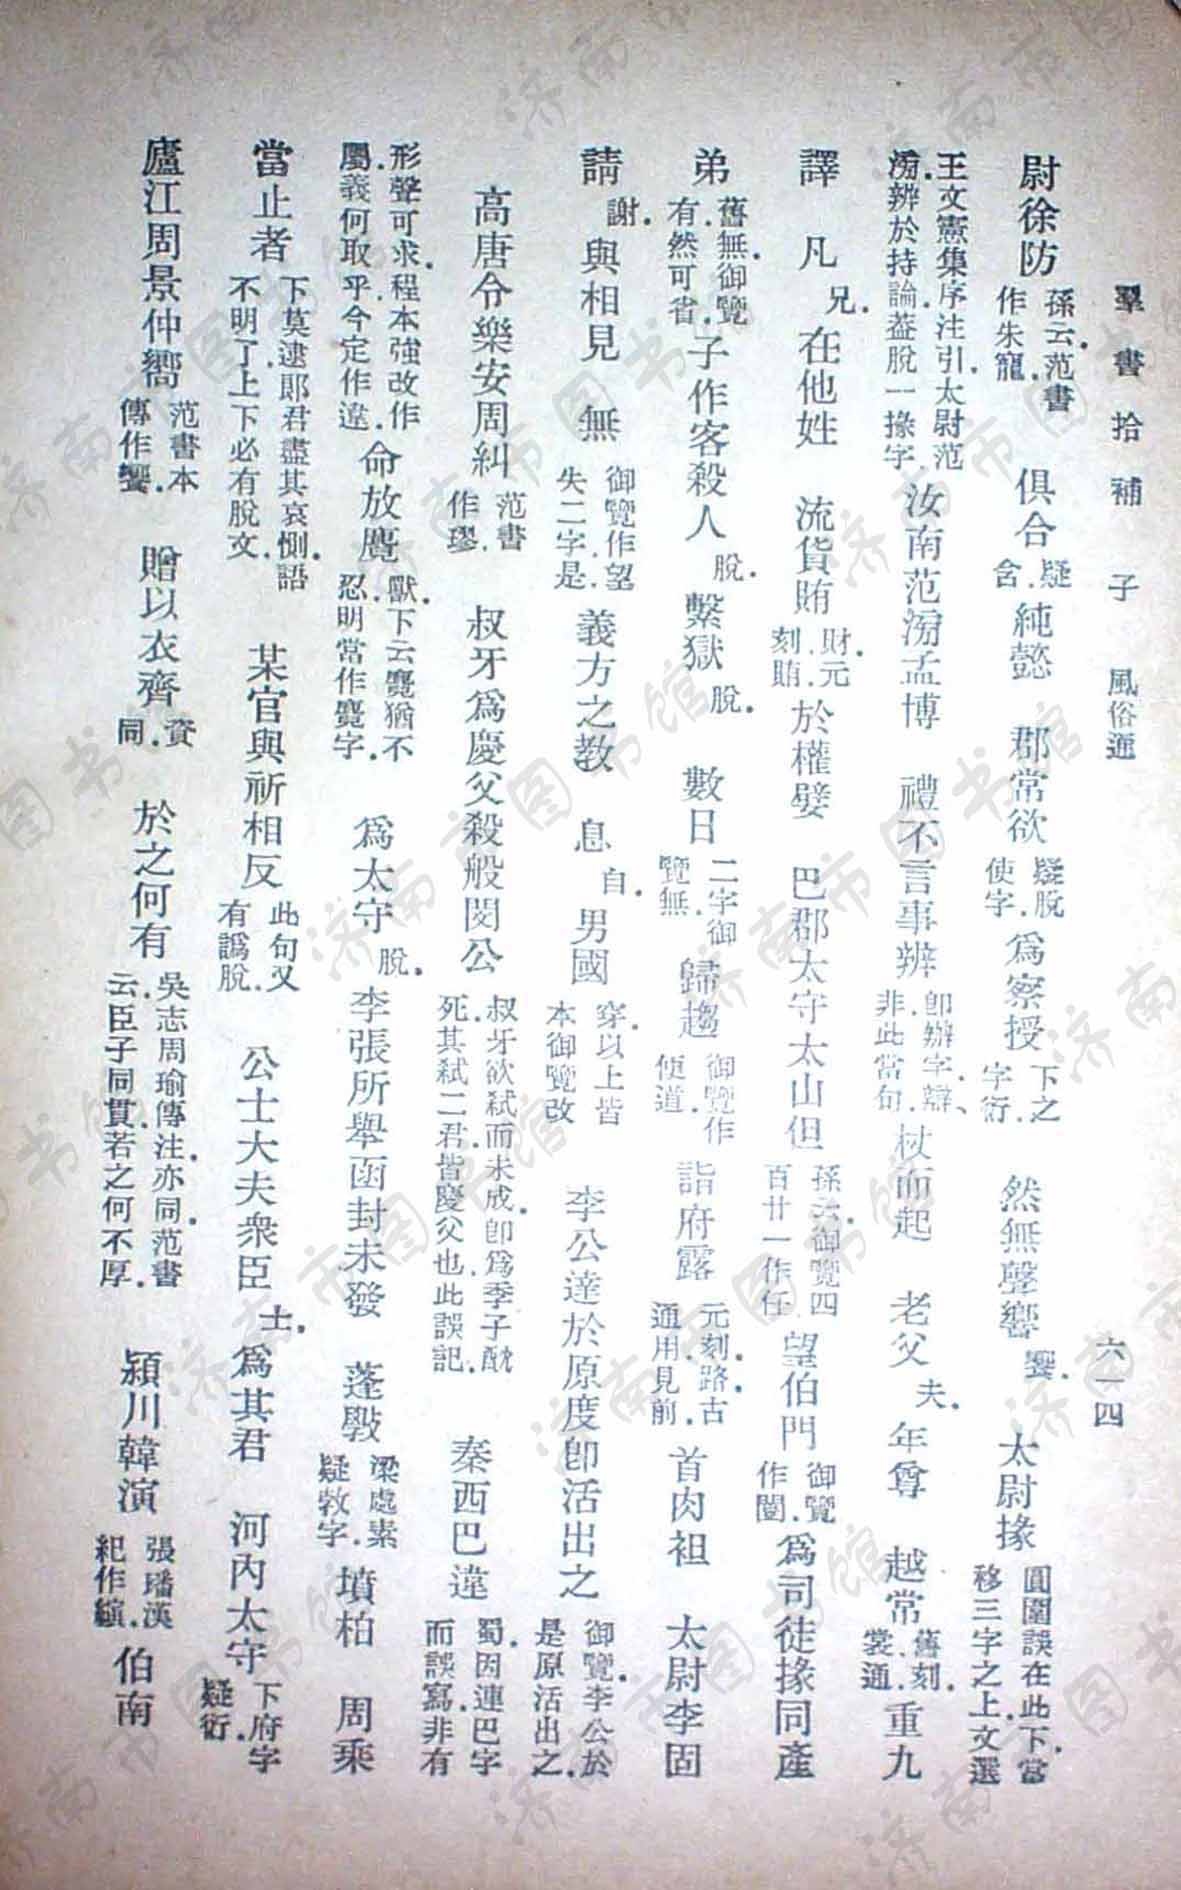 羣書拾補 子 風俗通 六一四
尉徐防 孫云范書作朱寵 俱合 疑舍 純懿 郡常欲 疑脫使字 爲察授 下之字衍 然無聲響 饗 太尉掾 圓圍誤在此下當移三字之上文選
王文憲集序注引太尉范滂辨於持論葢脫一掾字 汝南范滂孟博 禮不言事辨 卽辦字辯非此當句 杖而起 老父 夫 年尊 越常 舊刻裳通 重九
譯 凡 兄 在他姓 流貨賄 財元刻賄 於權嬖 巴郡太守太山但 孫云御覽四百廿一作任 望伯門 御覽作闓 爲司徒掾同產
弟 舊無御覽有然可省 子作客殺人 脫 繫獄 脫 數日 二字御覽無 歸趨 御覽作便道 詣府露 元刻路古通用見前 首肉袒 太尉李固
請 謝 與相見 無 御覽作望失二字是 義方之教 息 自 男國 穿以上皆本御覽改 李公達於原度卽活出之 御覽李公於是原活出之
高唐令樂安周糾 范書作璆 叔牙爲慶父殺般閔公 叔牙欲弒而未成卽爲季子酖死其弒二君皆慶父也此誤記 秦西巴違 蜀因連巴字而誤寫非有
形聲可求程本強改作屬義何取乎今定作違 命放麑 獸下云麑猶不忍明當作麑字 爲太守 脫 李張所舉函封未發 蓬㪇 梁處素疑敎字 墳柏 周乘
當止者 下莫逮郞君盡其哀惻語不明了上下必有脫文 某官與祈相反 此句又有譌脫 公士大夫衆臣 士 爲其君 河內太守 下府字疑衍
廬江周景仲嚮 范書本傳作饗 贈以衣齊 資同 於之何有 吳志周瑜傳注亦同范書云臣子同貫若之何不厚 潁川韓演 張璠漢紀作縯 伯南